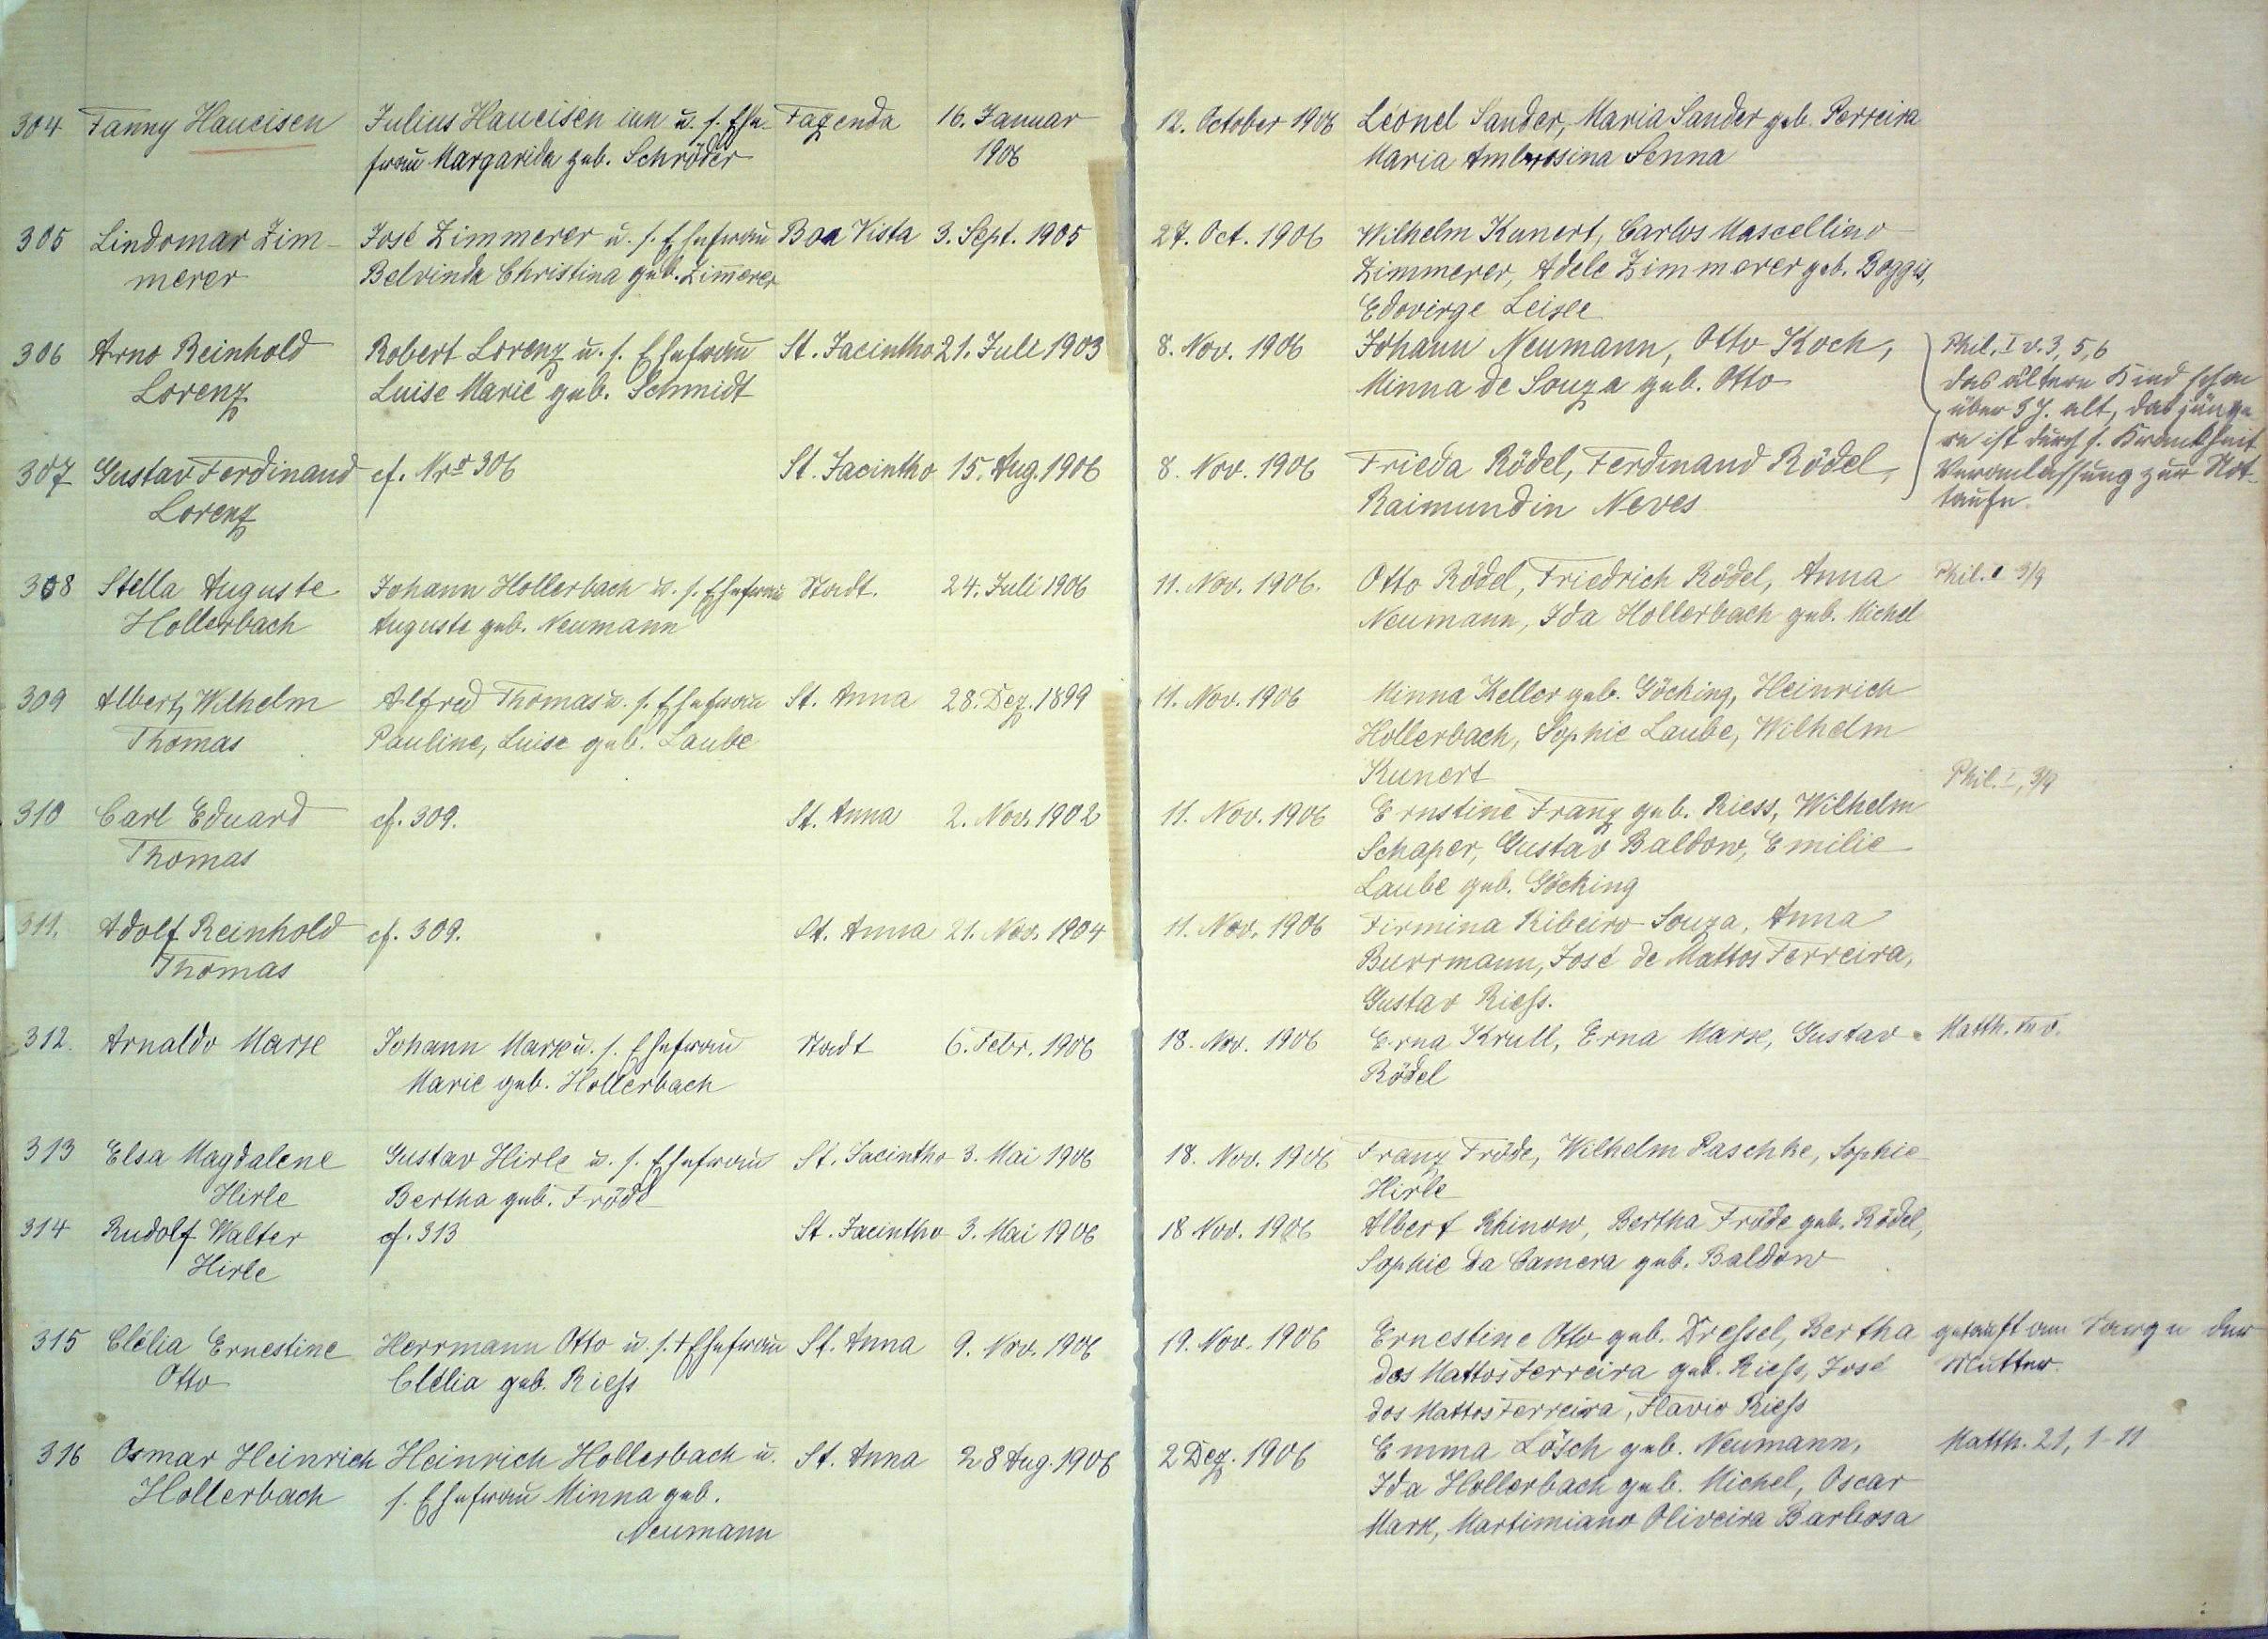 304 Fanny Haueisen Julius Haueisen jun u. s. Ehe- Fazenda 16. Januar 12. October 1906 Léonel Sander, Maria Sander geb. Perreira
frau Margarida geb. Schröder 1906 Maria Ambrosina Senna
305 Lindomar Zim- José Zimmerer u. s. Ehefrau Boa Vista 3. Sept. 1905 27. Oct. 1906 Wilhelm Kunert, Carlos Mascellino
merer Belvinda Christina geb. Zimerer Zimmerer, Adele Zimmerer geb. Boggis,
Edovirge
306 Arno Reinhold Robert Lorenz u. s. Ehefrau St. Jacintho 21. Juli 1903 8. Nov. 1906 Johann Neumann, Otto Koch, Phil. I v. 3, 5, 6
Lorenz Luise Marie geb. Schmidt Minna de Souza geb. Otto das ältere Kind schon
über 3 J. alt, das jünge-
re ist durch s. Krankheit
307 Gustav Ferdinand cf. Nro 306 St. Jacintho 15. Aug. 1906 8. Nov. 1906 Frieda Rödel, Ferdinand Rödel, Veranlassung zur Not-
Lorenz Raimundin Neves taufe.
308 Stella Auguste Johann Hollerbach u. s. Ehefrau Stadt. 24. Juli 1906 11. Nov. 1906. Otto Rödel, Friedrich Rödel, Anna Phil. 3/9
Hollerbach Auguste geb. Neumann Neumann, Ida Hollerbach geb. Michel
309 Albert, Wilhelm Alfred Thomas u. s. Ehefrau St. Anna 28. Dez. 1899 11. Nov. 1906 Minna Keller geb. Göcking, Heinrich
Thomas Pauline, Luise geb. Laube Hollerbach, Sophie Laube, Wilhelm
Kunert Phil. I, 3/9
310 Carl Eduard cf. 309. St. Anna 2. Nov. 1902 11. Nov. 1906 Ernstine Franz geb. Riess, Wilhelm
Thomas Schaper, Gustav Baldow, Emilie
Laube geb. Göcking
311. Adolf Reinhold cf. 309. St. Anna 21. Nov. 1904 11. Nov. 1906 Firmina Ribeiro Souza, Anna
Thomas Burrmann, José de Mattos Ferreira,
Gustav Riess.
312. Arnaldo Marx Johann Marx u. s. Ehefrau Stadt 6. Febr. 1906 18. Nov. 1906 Erna Krull, Erna Marx, Gustav Matth. v.
Marie geb. Hollerbach Rödel
313 Elsa Magdalene Gustav Hirle u. s. Ehefrau St. Jacintho 3. Mai 1906 18. Nov. 1906 Franz Fröde, Wilhelm Paschke, Sophie
Hirle Bertha geb. Fröde Hirle
314 Rudolf Walter cf. 313 St. Jacintho 3. Mai 1906 18 Nov. 1906 Albert Rhinow, Bertha Fröde geb. Rödel,
Hirle Sophie da Camera geb. Baldow
315 Clélia Ernestine Herrmann Otto u. s. + Ehefrau St. Anna 9. Nov. 1906 19. Nov. 1906 Ernestine Otto geb. Dressel, Bertha getauft am Sarge der
Otto Clélia geb. Riess dos Mattos Ferreira geb. Riess, José Mutter.
dos Mattos Ferreira, Flavio Riess
316 Osmar Heinrich Heinrich Hollerbach u. St. Anna 28 Aug. 1906 2 Dez. 1906 Emma Lösch geb. Neumann, Matth. 21, 1-11
Hollerbach s. Ehefrau Minna geb. Ida Hollerbach geb. Michel, Oscar
Neumann Marx, Martimiano Oliveira Barbosa